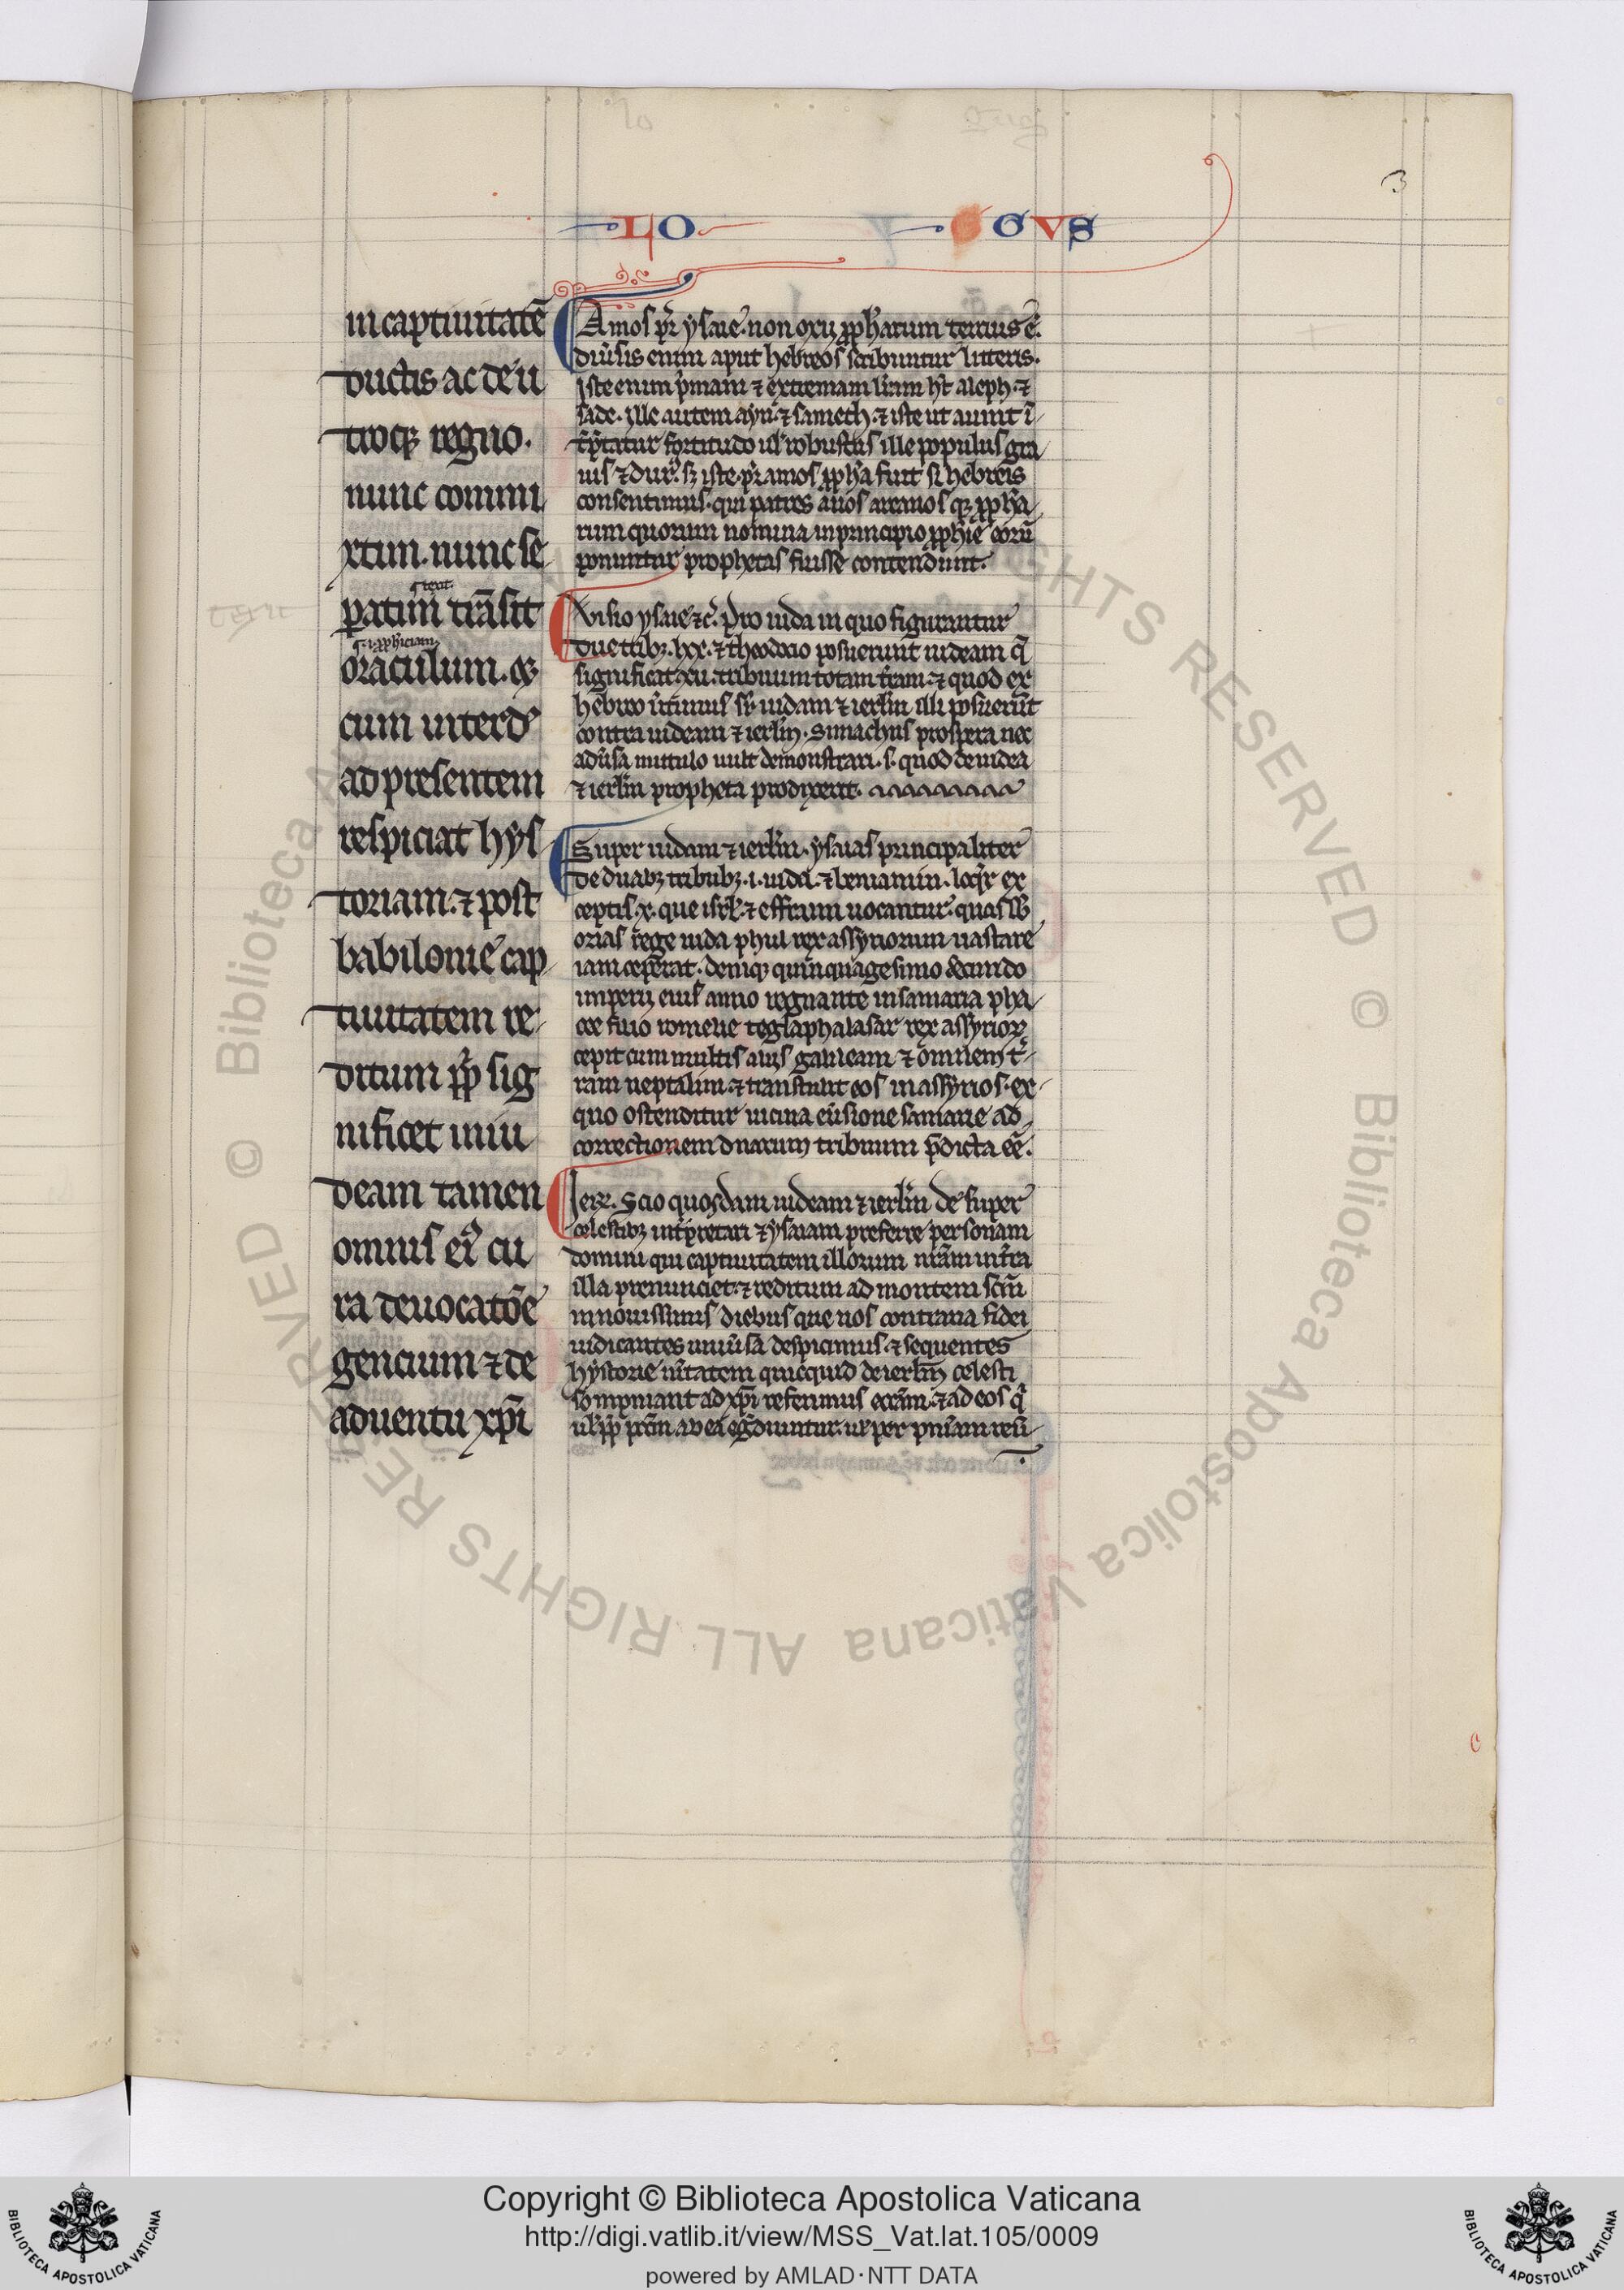 3
LO GVS
in captiuitatē
ductis ac de u
troq; regno.
nunc commi
xtim. nunc se
¶ texit.
patim trāsit
¶ i. ꝓph'iciam
oraculum. q;
cum interd'
ad presentem
respiciat hys
toriam. ⁊ post
babilonie cap
tiuitatem re
ditum pp̄li sig
nificet in iu
deam tamen
omnis ei' cu
ra de uocatōe
gencium ⁊ de
aduentu xp̄i
Amos pr̄ ysaie. non ex xij ꝓph'arum tercius ē.
diu'sis enim aput hebreos scribuntur litteris.
iste enim p'mam ⁊ extremam lr̄am h't aleph. ⁊
sade. ille autem ayn. ⁊ samech. ⁊ iste ut aiunt ī
t'p'tatur fortitudo ul' robustus ille populus gra
uis ⁊ dur'. s; iste pr̄ amos ꝓph'a fuit si hebreis
consentimus. qui patres auos atauos q; ꝓph'a
rum quorum nomina in principio ꝓph'ie eorū
ponuntur prophetas fuisse contendunt.
Visio ysaie ⁊c̄. Pro iuda in quo figurantur
due trib;. lxx. ⁊ theodocio posuerunt iudeam q̄
significat xij. tribuum totam t'ram. ⁊ quod ex
hebreo u'timus sr̄ iudam ⁊ ierl'm illi posuerūt
contra iudeam ⁊ ierl'm. Simachus prospera nec
adu'sa in titulo uult demonstrari. s. quod de iudea
⁊ ierl'm propheta prodixerit.
Super iudam ⁊ ierl'm. ysaias principaliter
de duab; tribub;. i. iuda. ⁊ beniamin. loq'r ex
ceptis. x. que isrl'. ⁊ effraim uocantur. quas sb'
ozias rege iuda phul rex assyriorum uastare
iam ceperat. deniq; quinquagesimo secundo
imperij eius anno regnante in samaria pha
cee filio romelie teglaphalasar rex assyrior;
cepit cum multis aliis galileam ⁊ omnem t'
ram neptalim. ⁊ transtulit eos in assyrios. ex
quo ostenditur uicina eu'sione samarie ad
correctionem duarum tribuum p'dicta eē.
Jere. Scio quosdam iudeam ⁊ ierl'm de super
celestib; int'pretari ⁊ ysaiam preferre personam
domini qui captiuitatem illorum nr̄am in t'ra
illa prenunciet. ⁊ reditum ad montem scm̄
in nouissimis diebus que nos contraria fidei
iudicantes uniu'sa despicimus. ⁊ sequentes
hystorie u'itatem quicquid de ierl'm celesti
sompniant ad xp̄i referimus eccl'am. ⁊ ad eos q'
ul' pp̄ pcc̄m ab ea eg'diuntur. ul' per pnīam reu'
Copyright © Biblioteca Apostolica Vaticana
http://digi.vatlib.it/view/MSS_Vat.lat.105/0009
powered by AMLAD·NTT DATA